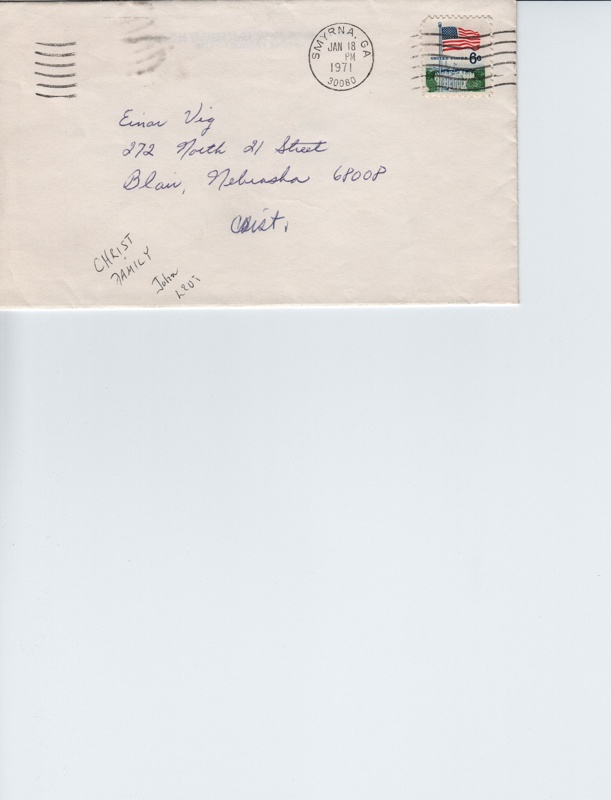 SMYRNA, GA
JAN 18
PM
1971
30080
UNITED STATES 6¢
Einar Vig
272 North 21 Street
Blair, Nebraska 68008
CHRIST
FAMILY
John